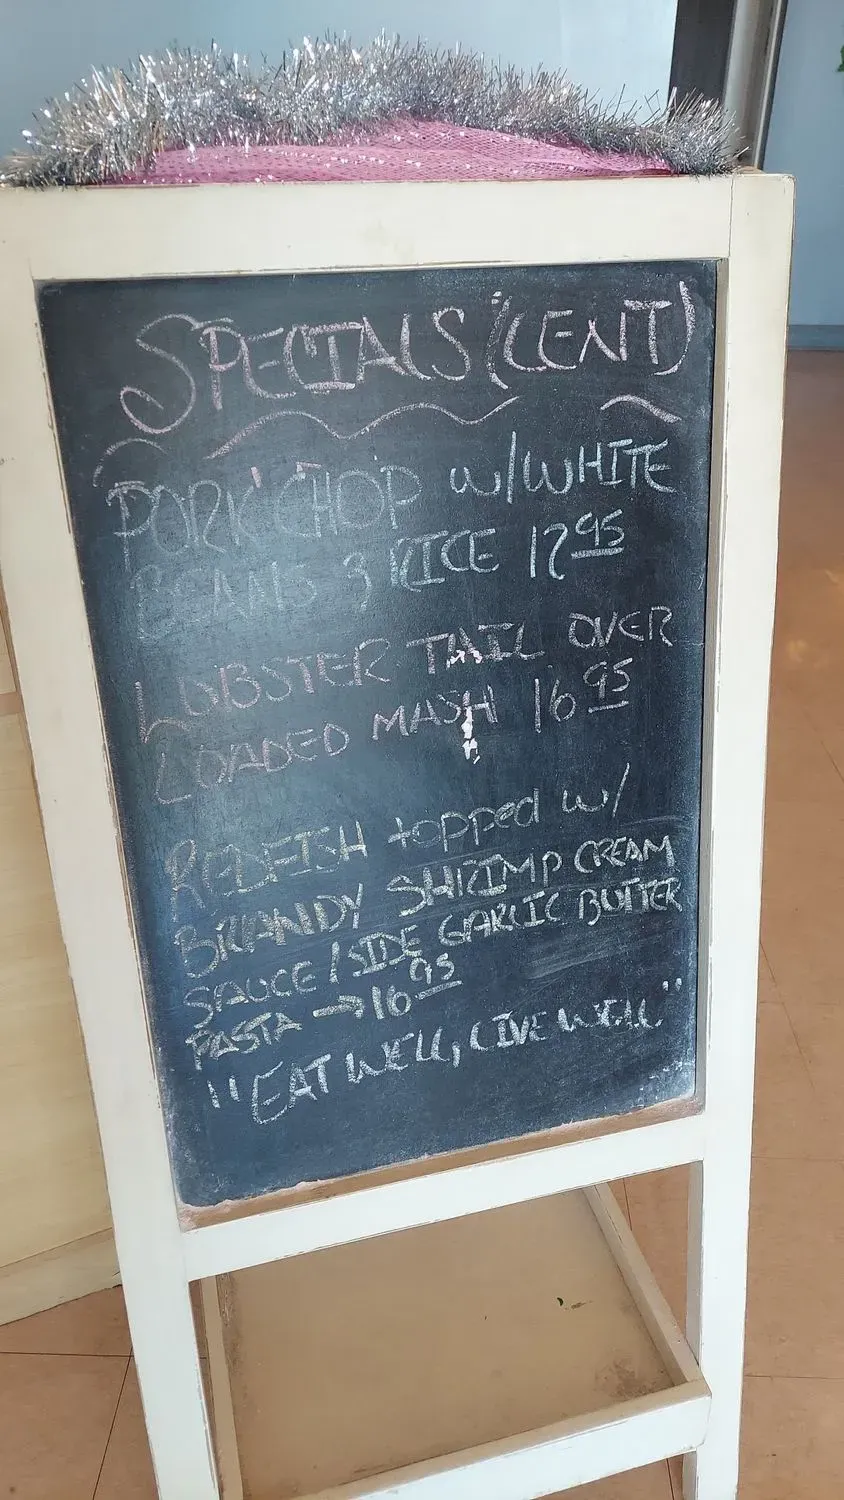 SPECIALS (LENT)
PORK CHOP w/WHITE
BEANS & RICE 12 95
LOBSTER TAIL OVER
LOADED MASH 16 95
REDFISH topped w/
BRANDY SHRIMP CREAM
SAUCE / SIDE GARLIC BUTTER
PASTA → 16 95
"EAT WELL, LIVE WELL"